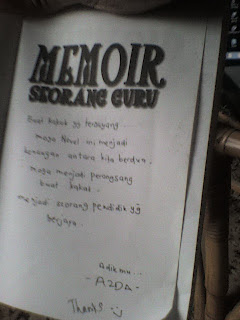 MEMOIR
SEORANG GURU
Buat kakak yg tersayang...
moga Novel ini menjadi
kenangan antara kita berdua.
moga menjadi perangsang
buat kakak.
menjadi seorang pendidik yg
berjaya.
Adikmu...
-AZDA-
Thanks :)